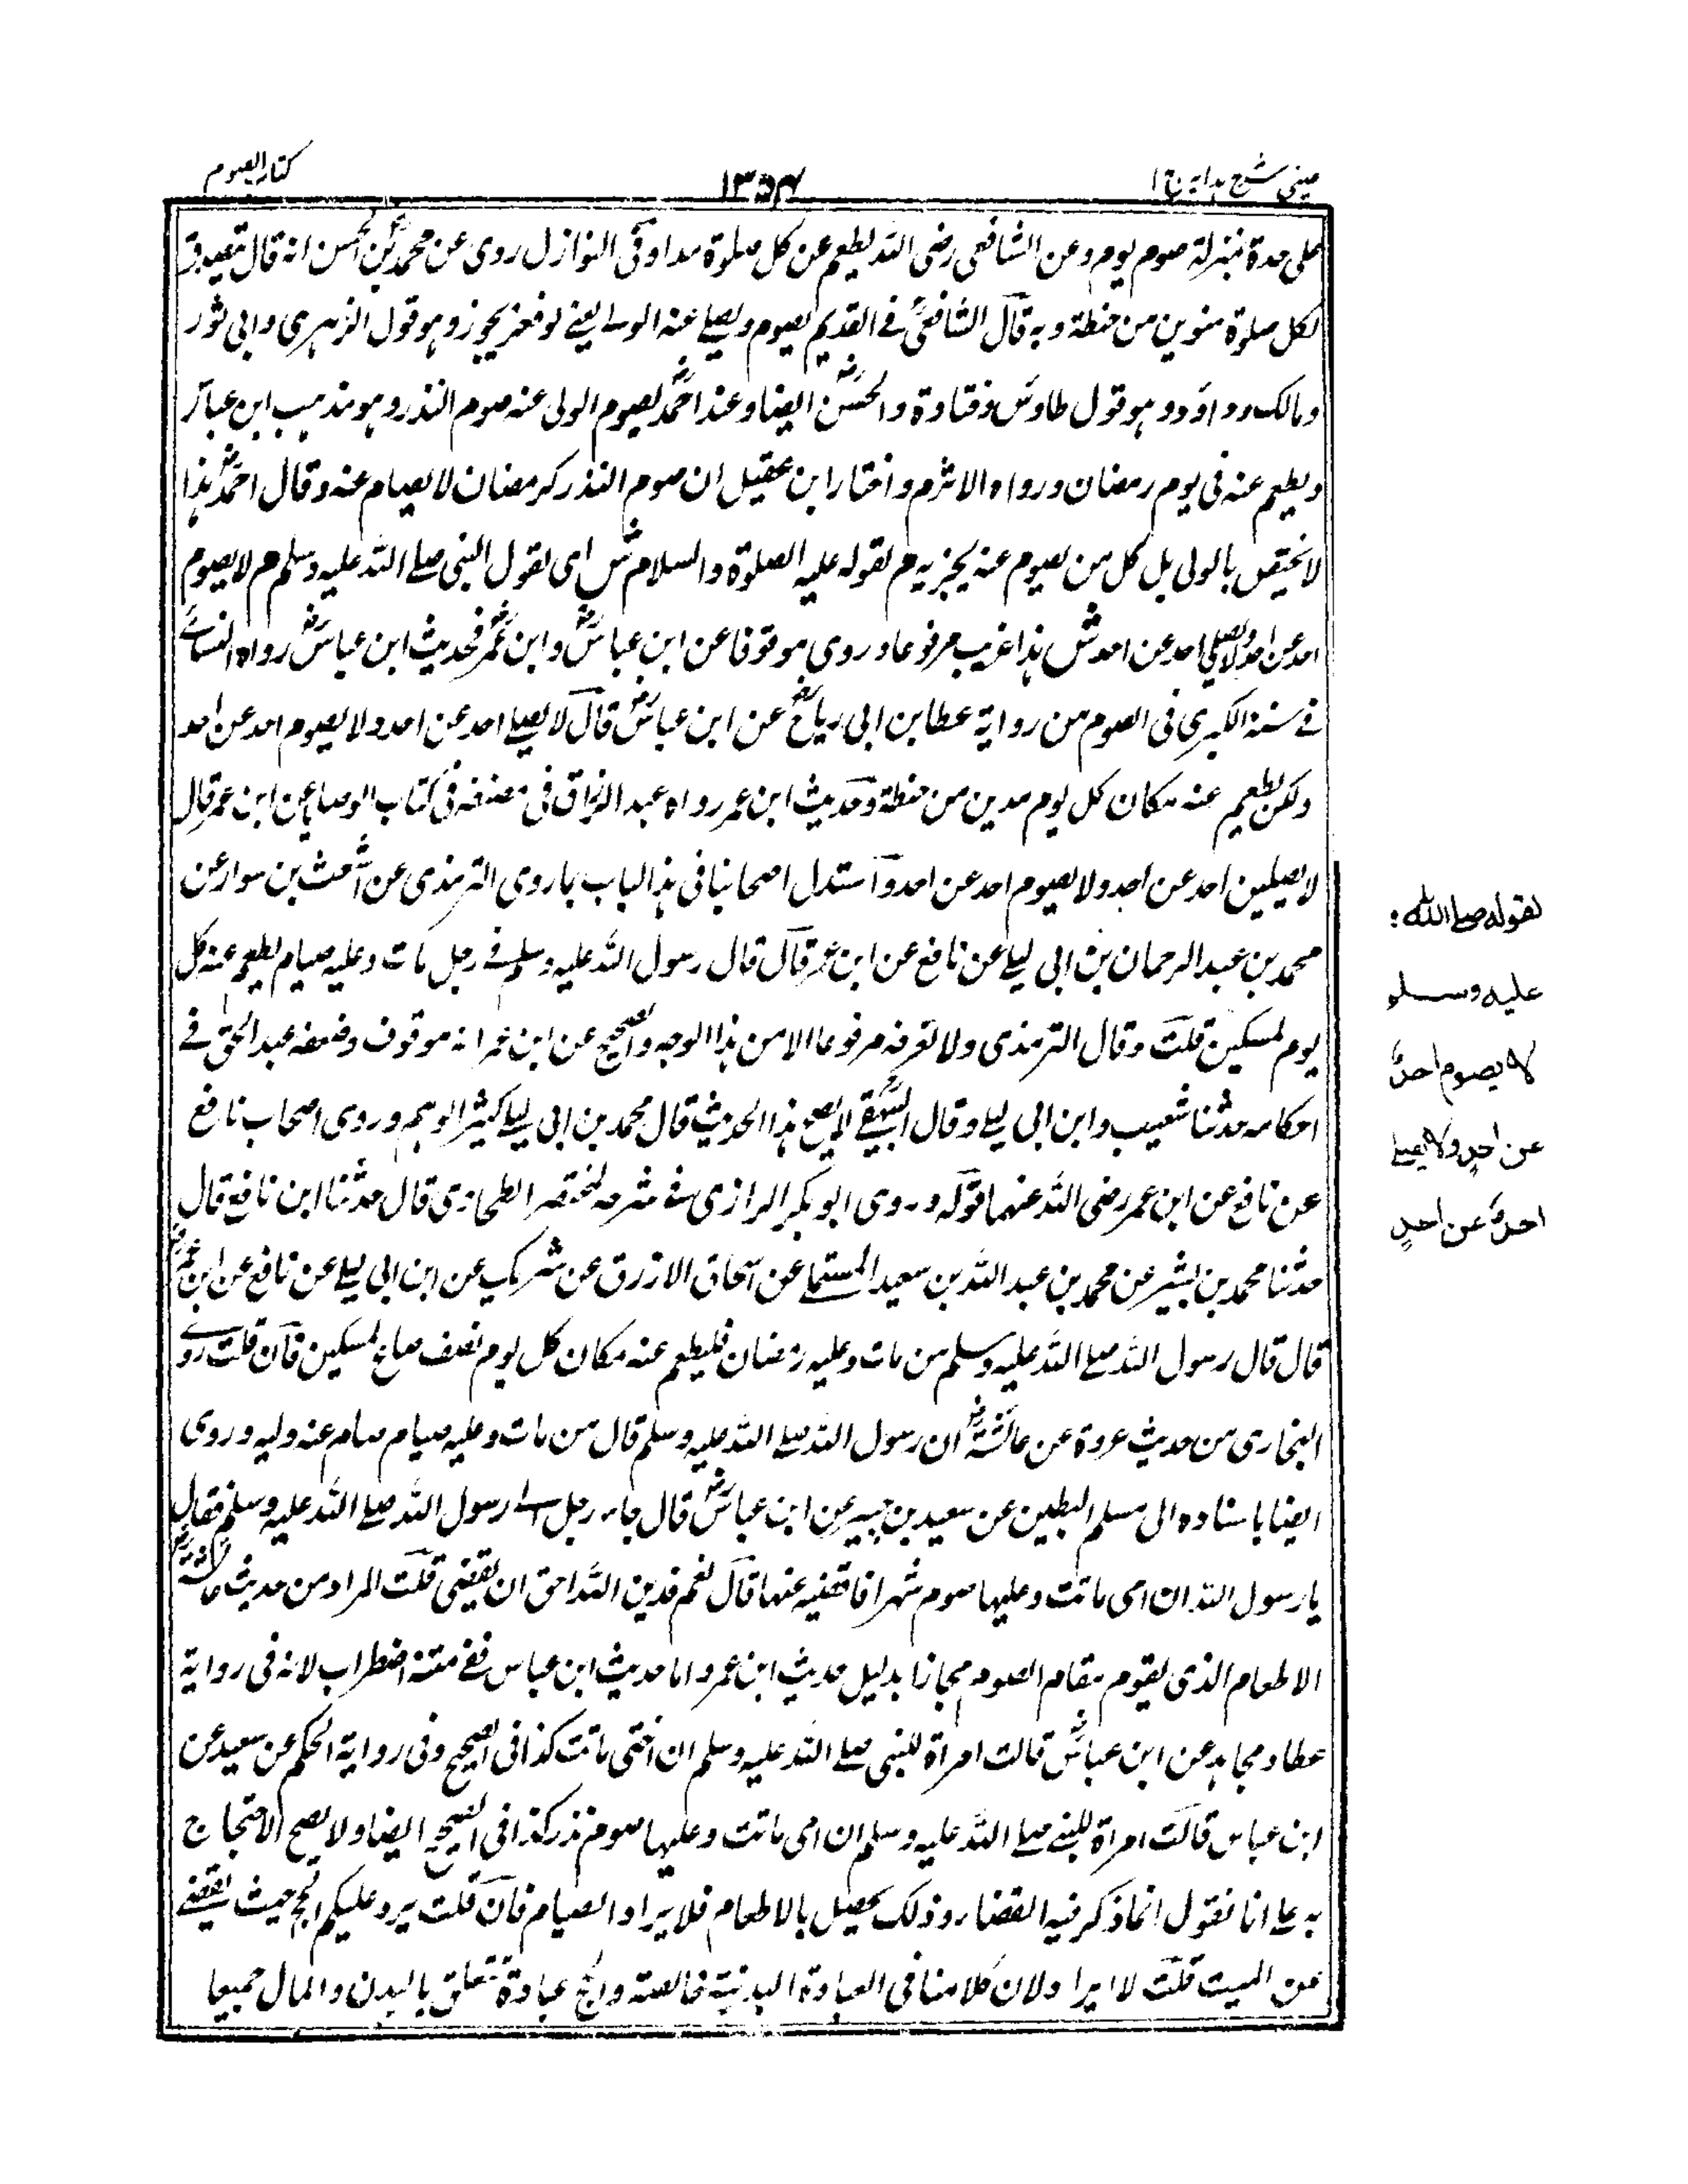 عینی شرح ہدایہ ج ۱
۱۳۵۴
کتاب الصوم
علی حدة بمنزلة صوم یوم وعن الشافعی رضی الله یطعم عن کل صلوة مدا وفی النوازل روی عن محمد بن الحسن انه قال یتصدق
لکل صلوة منوین من حنطة وبه قال الشافعی فی القدیم یصوم ویصلی عنه الولی یعنی لو فعل یجوز وهو قول الزهری وابی ثور
ومالک وداؤد وهو قول طاوس وقتادة والحسن ایضا وعند احمد یصوم الولی عنه صوم النذر وهو مذهب ابن عباس
ویطعم عنه فی یوم رمضان ورواه الاثرم واختار ابن عقیل ان صوم النذر کرمضان لا یصام عنه وقال احمد هذا
لا یختص بالولی بل کل من یصوم عنه یجزیه م لقوله علیه الصلوة والسلام ش ای لقول النبی صلی الله علیه وسلم م لا یصوم
احد عن احد ولا یصلی احد عن احد ش هذا غریب مرفوعا وروی موقوفا عن ابن عباس وابن عمر فحدیث ابن عباس رواه النسائے
فی سننه الکبری فی الصوم من روایة عطا بن ابی رباح عن ابن عباس قال لا یصلی احد عن احد ولا یصوم احد عن احد
ولکن یطعم عنه مکان کل یوم مدین من حنطة وحدیث ابن عمر رواه عبد الرزاق فی مصنفه فی کتاب الوصایا عن ابن عمر قال
لا یصلین احد عن احد ولا یصوم احد عن احد واستدل اصحابنا فی هذا الباب بما روی الترمذی عن اشعث بن سوار عن
محمد بن عبد الرحمان بن ابی لیلے عن نافع عن ابن عمر قال قال رسول الله علیه وسلم فی رجل مات وعلیه صیام یطعم عنه کل
یوم لمسکین قلت وقال الترمذی ولا نعرفه مرفوعا الا من هذا الوجه والصحیح عن ابن عمر انه موقوف وضعفه عبد الحق فی
احکامه حدثنا شعیب وابن ابی لیلے وقال البیهقی لا یصح هذا الحدیث قال محمد بن ابی لیلے کثیر الوهم وروی اصحاب نافع
عن نافع عن ابن عمر رضی الله عنهما قوله وروی ابو بکر الرازی فی شرحه لمختصر الطحاوی قال حدثنا ابن نافع قال
حدثنا محمد بن بشیر عن محمد بن عبد الله بن سعید المستملی عن اسحاق الازرق عن شریک عن ابن ابی لیلے عن نافع عن ابن عمر
قال قال رسول الله صلی الله علیه وسلم من مات وعلیه رمضان فلیطعم عنه مکان کل یوم نصف صاع لمسکین فان قلت روے
البخاری من حدیث عروة عن عائشة ان رسول الله صلی الله علیه وسلم قال من مات وعلیه صیام صام عنه ولیه وروی
ایضا باسناده الی مسلم البطین عن سعید بن جبیر عن ابن عباس قال جاء رجل الی رسول الله صلی الله علیه وسلم فقال
یا رسول الله ان امی ماتت وعلیها صوم شهر افاقضیه عنها قال نعم فدین الله احق ان یقضی قلت المراد من حدیث عائشة
الاطعام الذی یقوم مقام الصوم مجازا بدلیل حدیث ابن عمر واما حدیث ابن عباس ففی متنه اضطراب لانه فی روایة
عطاء ومجاهد عن ابن عباس قالت امراة للنبی صلی الله علیه وسلم ان اختی ماتت کذا فی الصحیح وفی روایة الحکم عن سعید عن
ابن عباس قالت امراة للنبی صلی الله علیه وسلم ان امی ماتت وعلیها صوم نذر کذا فی الصحیح ایضا ولا یصح الاحتجاج
به علی انا نقول انما ذکر فیه القضاء وذلک یحصل بالاطعام فلا یراد الصیام فان قلت یرد علیکم الحج حیث یقضی
عن المیت قلت لا ایراد لان کلامنا فی العبادة البدنیة خالصة والحج عبادة تتعلق بالبدن والمال جمیعا
لقوله صلی الله
علیه وسلم
لا یصوم احدٌ
عن احدٍ ولا یصلی
احدٌ عن احدٍ